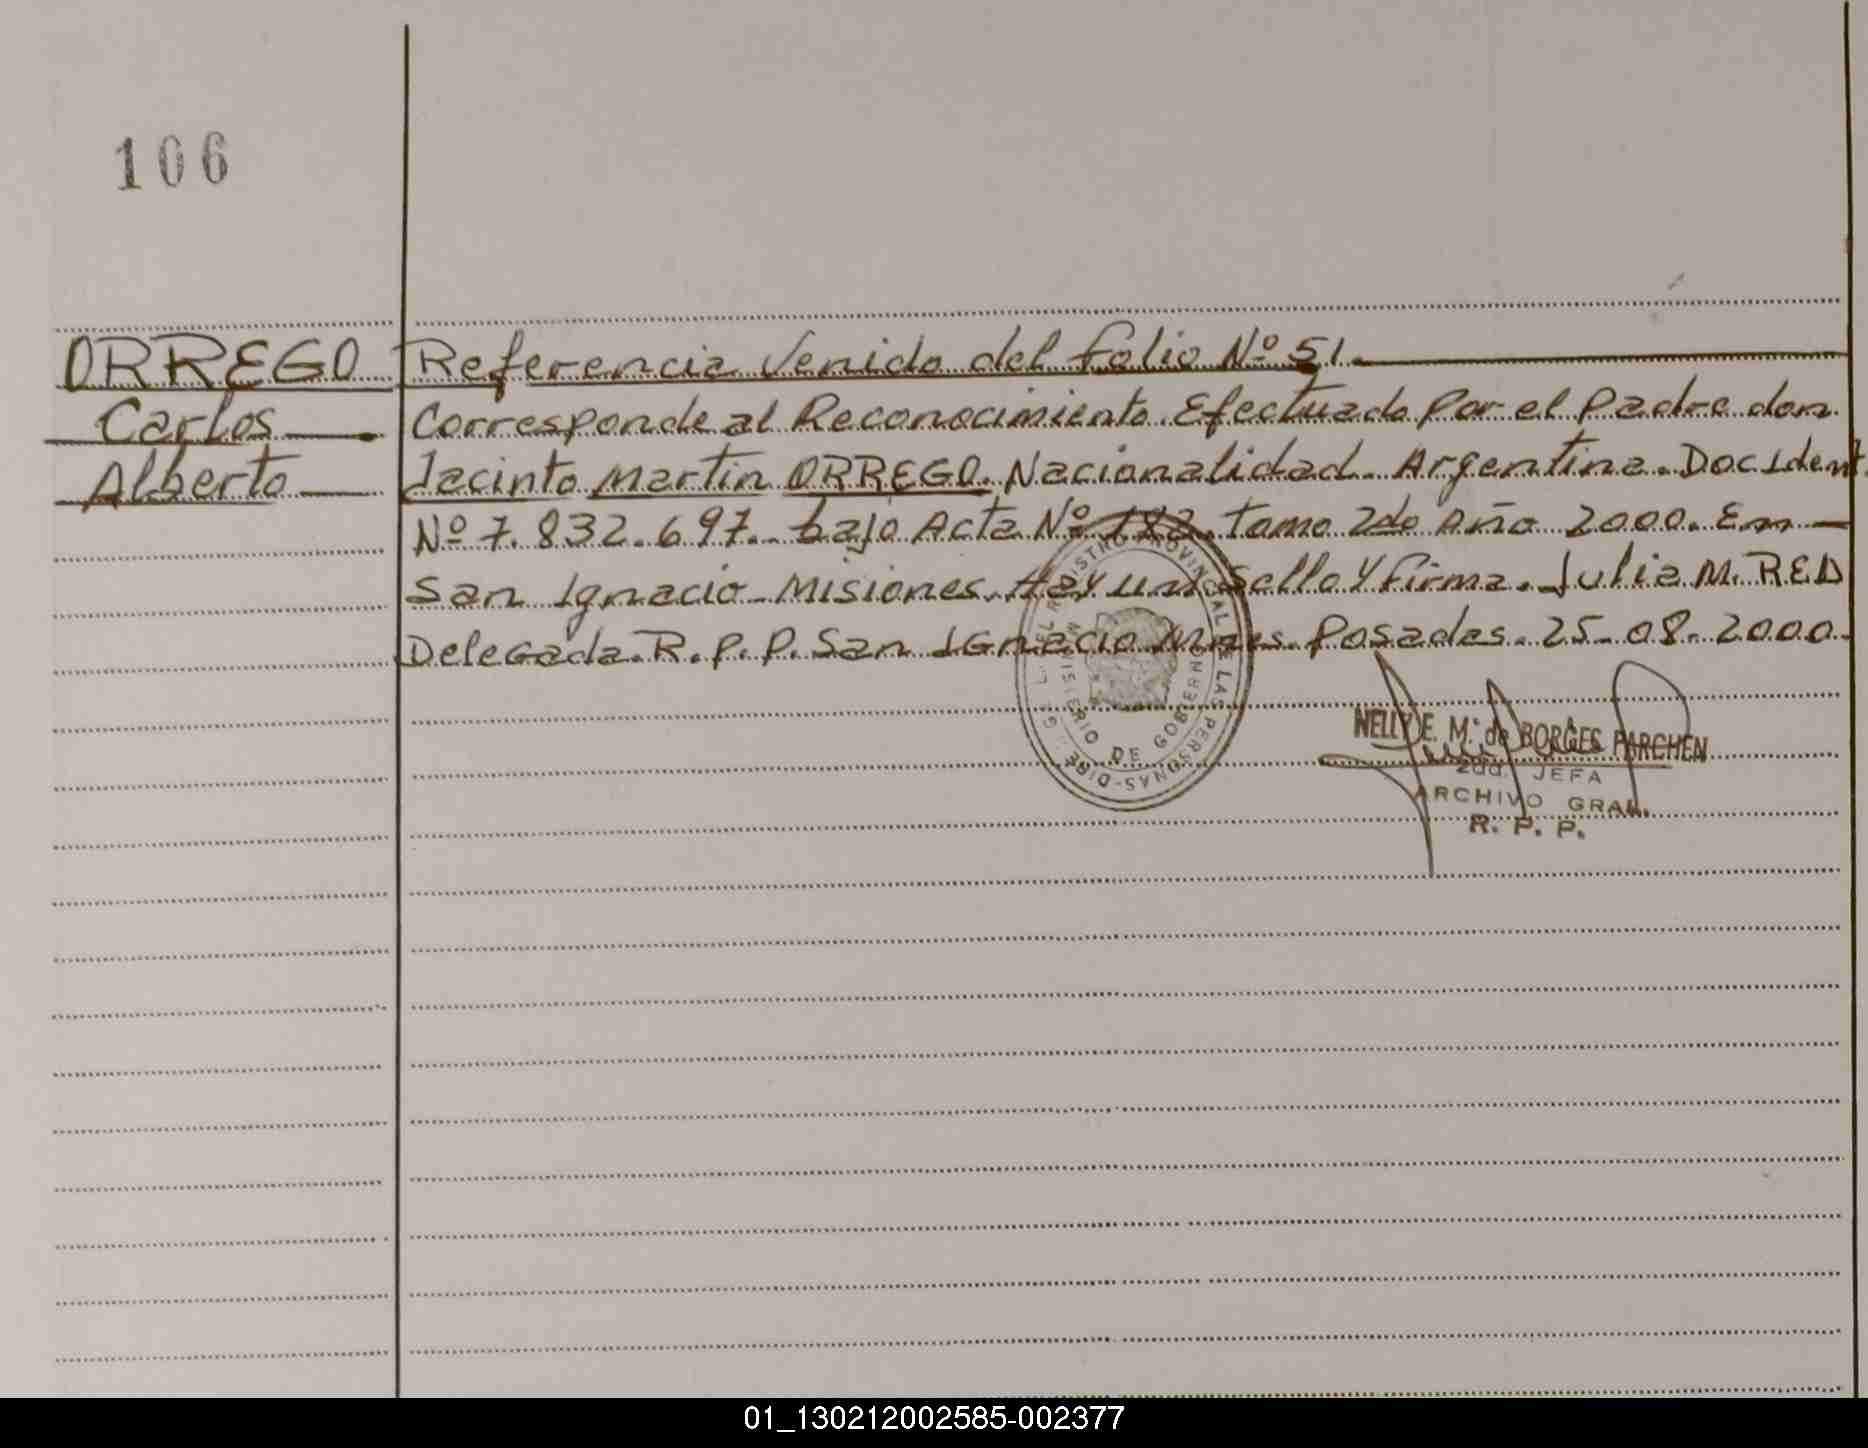 106
ORREGO
Carlos
Alberto
Referencia Venido del folio Nº 51.
Corresponde al Reconocimiento Efectuado Por el Padre don
Jacinto Martin ORREGO. Nacionalidad Argentina. Doc Ident.
Nº 7.832.697. bajo Acta Nº 182. Tomo 2do Año 2000. En
San Ignacio Misiones. Hay un Sello Y firma. Julia M. RED
Delegada. R.P.P. San IGnacio Mnes. Posadas. 25-08-2000.
REGISTRO PROVINCIAL DE LAS PERSONAS-DIRE
MINISTERIO DE GOBIERN
NELLY E. M. de BORGES PARCHEN
2da. JEFA
ARCHIVO GRAL.
R. P. P.
01_130212002585-002377